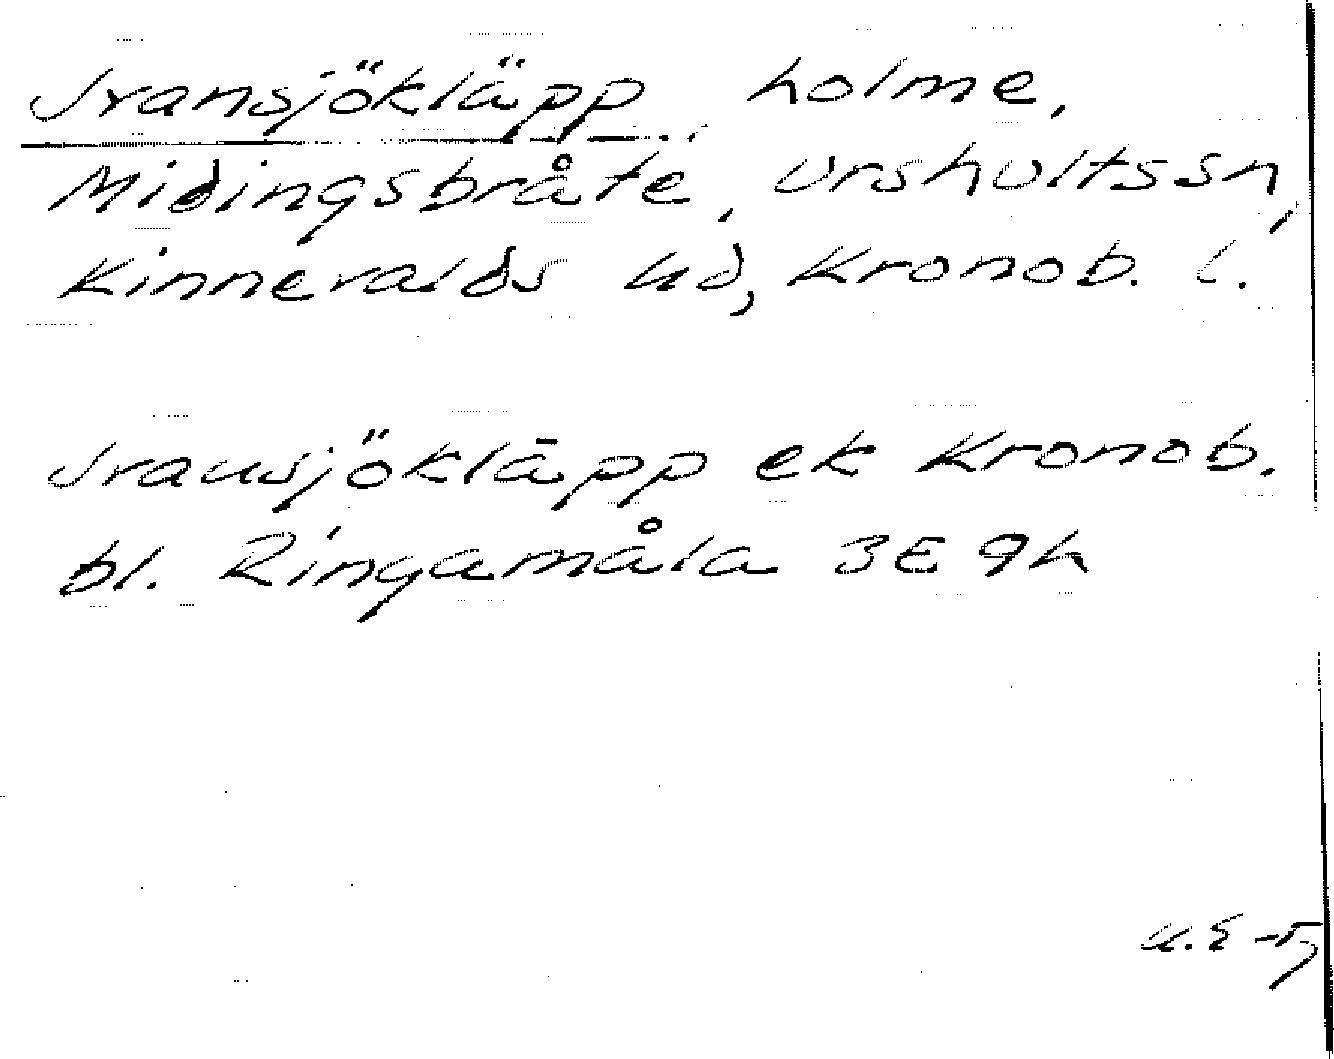 Jransjökläpp, holme,
Midingsbråte, Urshultssn,
Kinnevalds hd, Kronob. l.
Jransjökläpp ek Kronob.
bl. Ringamåla 3E 9h